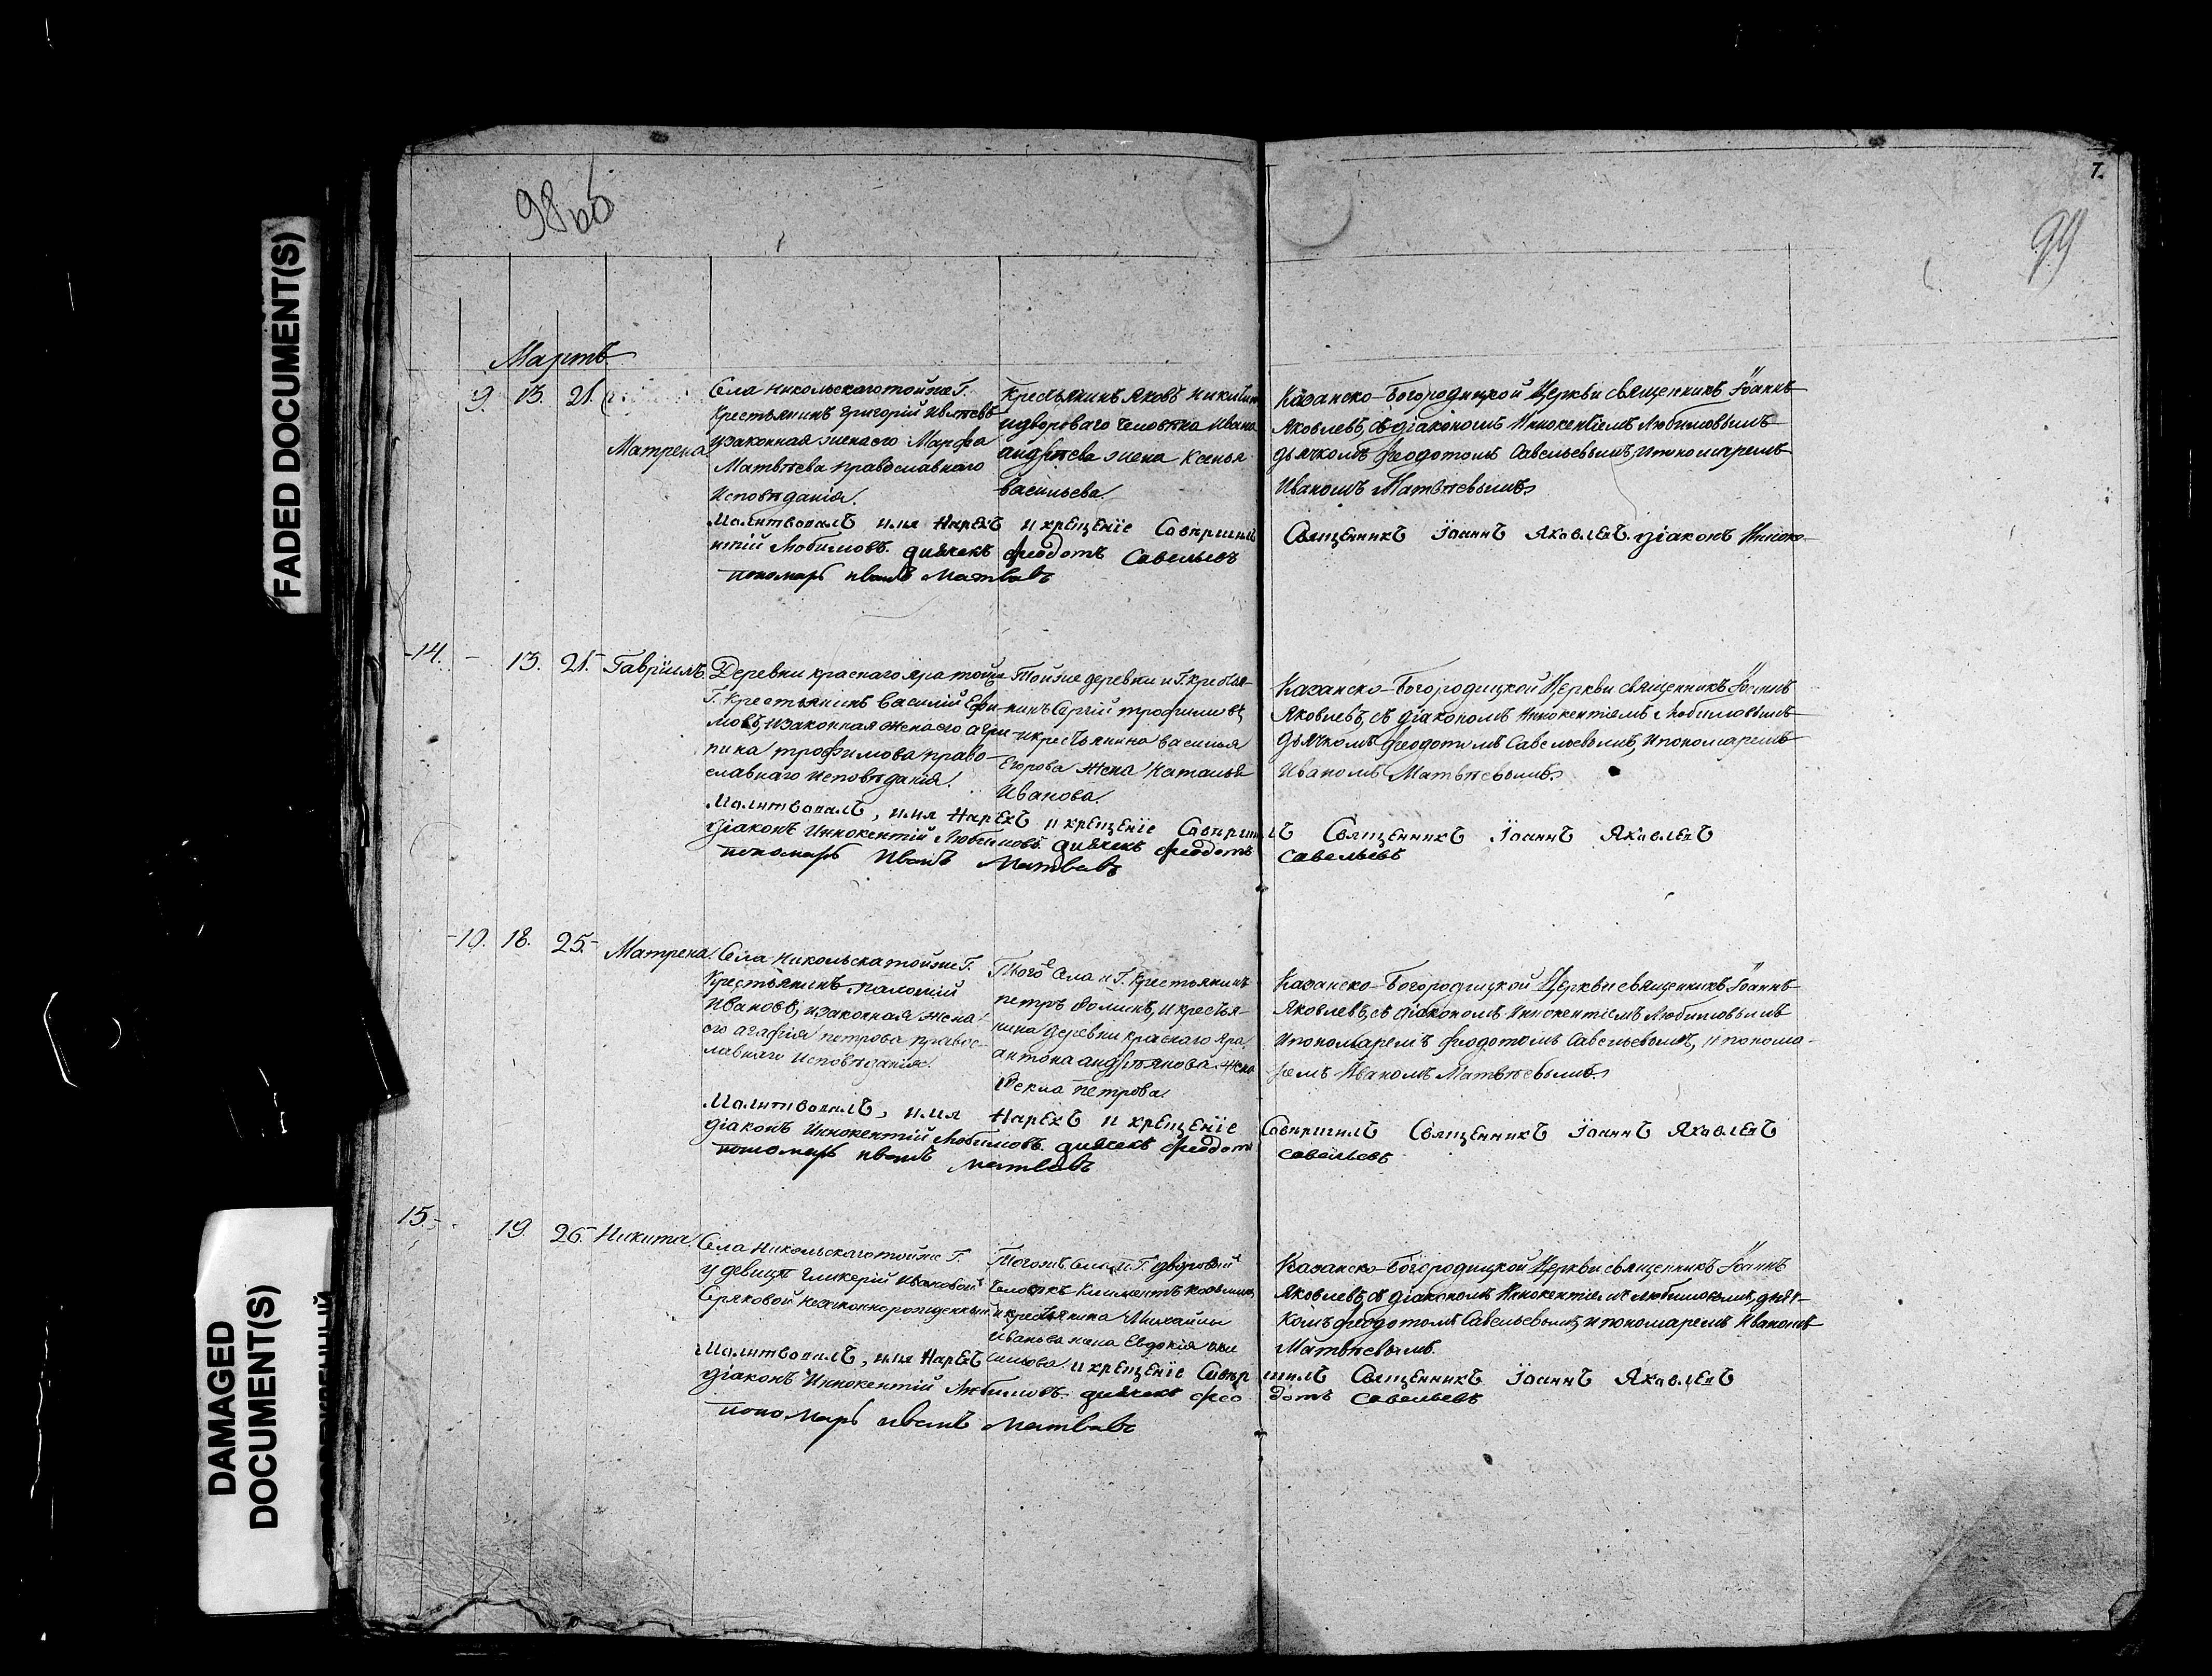 FADED DOCUMENT(S)
DAMAGED
DOCUMENT(S)
98 об
7.
99
Мартъ
9. 13. 21.
Матрена
Села Никольскаго той же Г.
Крестьянинъ Григорій
и законная жена его Марфа
Матвѣева православнаго
Исповѣданія.
Крестьянинъ Яковъ Никитинъ
и двороваго человѣка Ивана
Андрѣева жена Ксенья
Васильева.
Казанско-Богородицкой Церкви священникъ Іоаннъ
Яковлевъ, съ діакономъ Иннокентіемъ Любимовымъ
дьячкомъ Феодотомъ Савельевымъ, и пономаремъ
Иваномъ Матвѣевымъ.
Молитвовалъ имя нарехъ и крещеніе Совершилъ Священникъ Іоаннъ Яковлевъ. діаконъ Инноке-
нтій Любимовъ. диячекъ Феодотъ Савельевъ
пономарь иванъ Матвевъ
14. - 13. 21. Гавріилъ.
Деревни краснаго яра той же
Г. Крестьянинъ Василій Ефи-
мовъ, и законная жена его агри-
пина трофимова право-
славнаго Исповѣданія.
Той же деревни и Г. кресья-
нинъ Сергій трофимовъ,
и крестьянина василья
Егорова жена Наталья
Иванова.
Казанско-Богородицкой Церкви священникъ Іоаннъ
Яковлевъ, съ діакономъ Иннокентіемъ Любимовымъ
Дьячкомъ Феодотомъ Савельевымъ, и пономаремъ
Иваномъ Матвѣевымъ.
Молитвовалъ, имя нарехъ и крещеніе Совершилъ Священникъ Іоаннъ Яковлевъ
діаконъ Иннокентій Любимовъ. диячекъ Феодотъ Савельевъ
пономарь Иванъ Матвевъ
-10. 18. 25.- Матрена.
Села Никольска той же Г.
Крестьянинъ
Ивановъ, и законная жена
его агафія петрова правос-
лавнаго Исповѣданія.
Того Села и Г. Крестьянинъ
петръ Фоминъ, и кресья-
нина деревни краснаго яра
антона андрѣянова жена
Фекла петрова.
Казанско-Богородицкой Церкви священникъ Іоаннъ
Яковлевъ, съ діакономъ Иннокентіемъ Любимовымъ
И пономаремъ Феодотомъ Савельевымъ, и понома-
ремъ Иваномъ Матвѣевымъ.
Молитвовалъ, имя нарехъ и крещеніе Совершилъ Священникъ Іоаннъ Яковлевъ
діаконъ Иннокентій Любимовъ. диячекъ Феодотъ Савельевъ
пономарь иванъ Матвевъ
15.- 19. 26. Никита.
Села Никольскаго той же Г.
у девицы Гликерій Ивановой
Серяковой незаконнорожденный
Того же Села и Г. дворовый
Человѣкъ Климентъ
и крестьянина Михайлы
Иванова жена Евдокія
Казанско-Богородицкой Церкви священникъ Іоаннъ
Яковлевъ, съ діакономъ Иннокентіемъ Любимовымъ, дьяч-
комъ Феодотомъ Савельевымъ, и пономаремъ Иваномъ
Матвѣевымъ.
Молитвовалъ, имя нарехъ и крещеніе Совершилъ Священникъ Іоаннъ Яковлевъ
діаконъ Иннокентій Любимовъ. диячекъ Феодотъ Савельевъ
пономарь иванъ Матвевъ